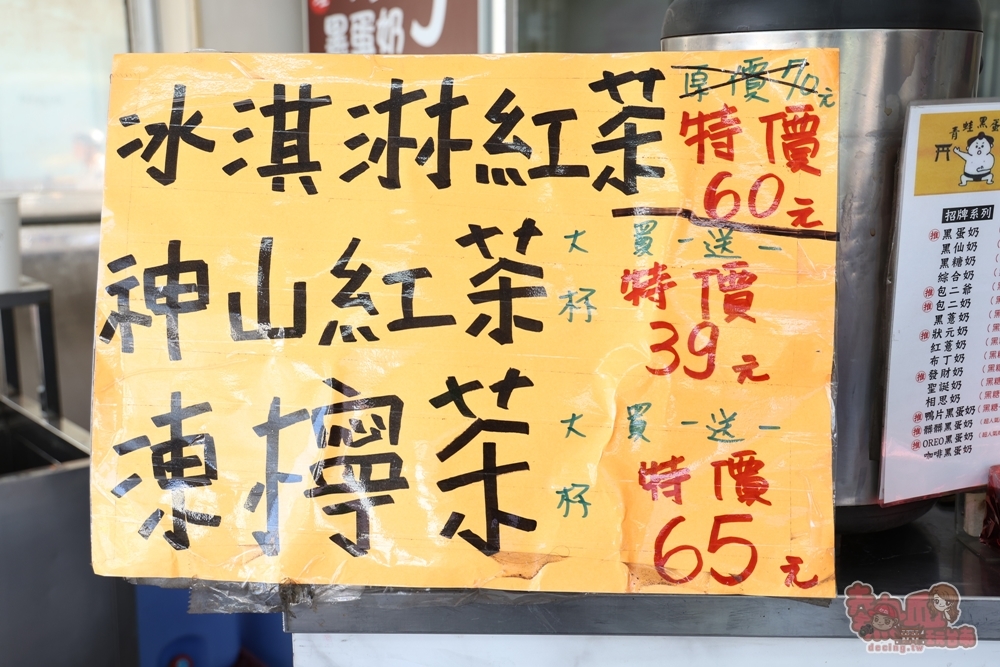 黑蛋奶
冰淇淋紅茶 原價70元 特價60元
神山紅茶 大杯 買一送一 特價39元
凍檸茶 大杯 買一送一 特價65元
青蛙黑蛋
招牌系列
推 黑蛋奶
黑仙奶
黑糖奶
綜合奶
推 包二爺
推 包二奶
黑薏奶
推 狀元奶
紅薏奶
布丁奶
推 發財奶
聖誕奶
相思奶
推 鴨片黑蛋奶
推 髒髒黑蛋奶
推 OREO黑蛋奶
咖啡黑蛋奶
decing.tw